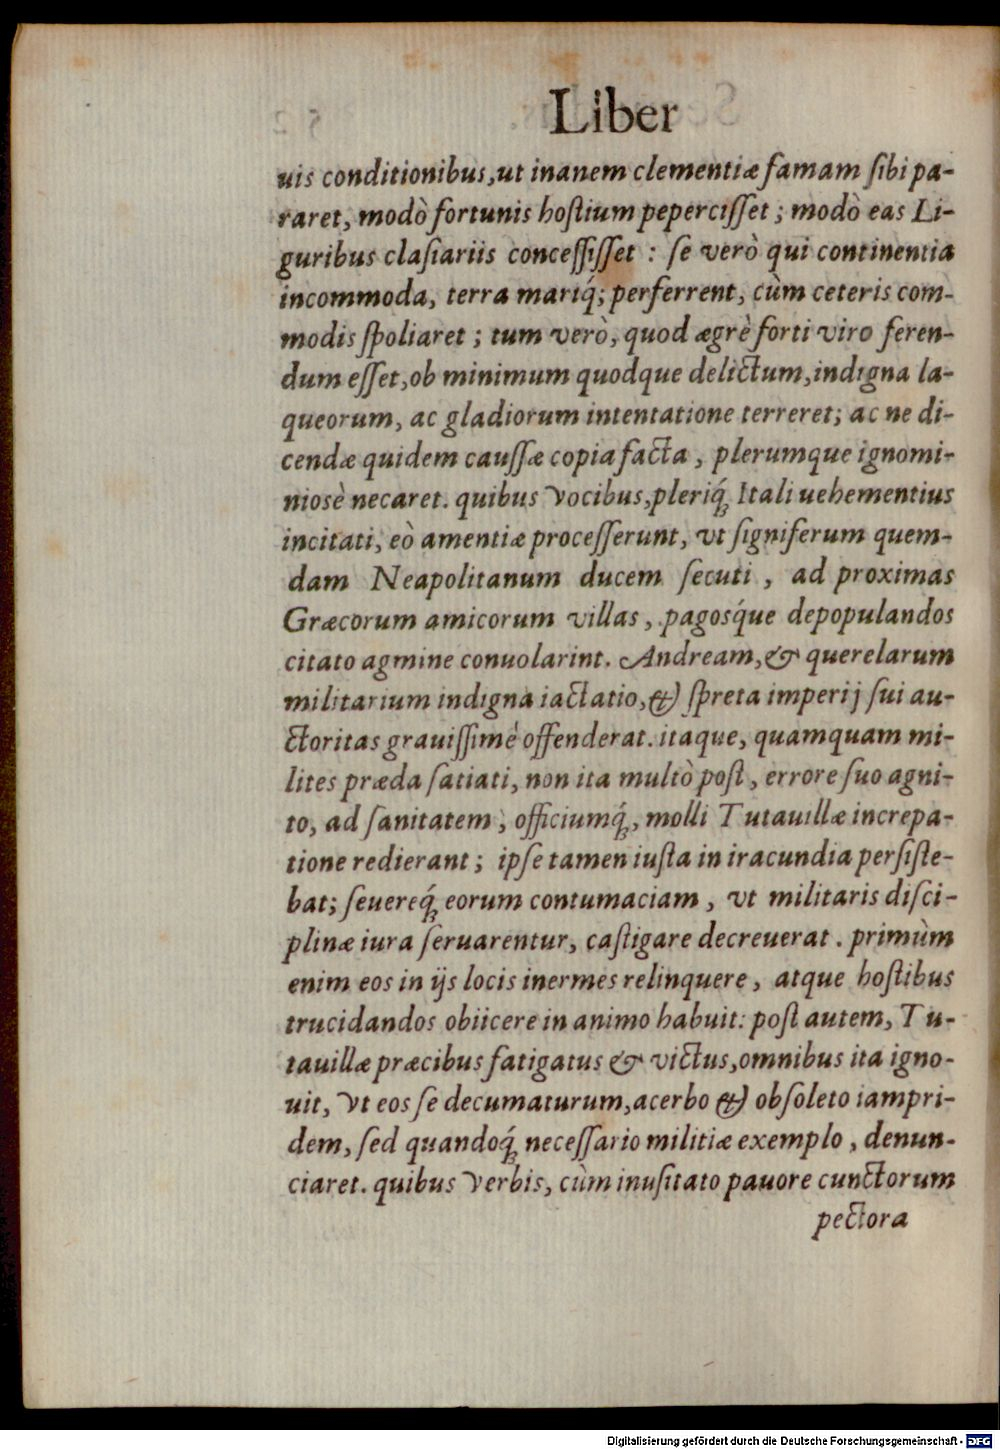 Liber
uis conditionibus,ut inanem clementiæ famam ſibi pa-
raret, modò fortunis hoſtium peperciſſet ; modò eas Li-
guribus claſiariis conceſſiſſet : ſe verò qui continentia
incommoda, terra mariq́; perferrent, cùm ceteris com-
modis ſpoliaret ; tum verò, quod ægrè forti viro feren-
dum eſſet,ob minimum quodque delictum,indigna la-
queorum, ac gladiorum intentatione terreret; ac ne di-
cendæ quidem cauſſæ copia facta , plerumque ignomi-
niosè necaret. quibus vocibus,pleriq́ꝫ Itali uehementius
incitati, eò amentiæ proceſſerunt, vt ſigniferum quem-
dam Neapolitanum ducem ſecuti , ad proximas
Græcorum amicorum villas , pagosq́ue depopulandos
citato agmine conuolarint. Andream,& querelarum
militarium indigna iactatio,& ſpreta imperij ſui au-
ctoritas grauiſſimè offenderat. itaque, quamquam mi-
lites præda ſatiati, non ita multò poſt , errore ſuo agni-
to, ad ſanitatem , officiumq́ꝫ, molli Tutauillæ increpa-
tione redierant ; ipſe tamen iuſta in iracundia perſiſte-
bat; ſeuereq́ꝫ eorum contumaciam , vt militaris diſci-
plinæ iura ſeruarentur, caſtigare decreuerat . primùm
enim eos in ijs locis inermes relinquere , atque hoſtibus
trucidandos obiicere in animo habuit: poſt autem, Tu-
tauillæ præcibus fatigatus & victus,omnibus ita igno-
uit, vt eos ſe decumaturum,acerbo & obſoleto iampri-
dem, ſed quandoq́ꝫ neceſſario militiæ exemplo , denun-
ciaret. quibus verbis, cùm inuſitato pauore cunctorum
pectora
Digitalisierung gefördert durch die Deutsche Forschungsgemeinschaft - DFG